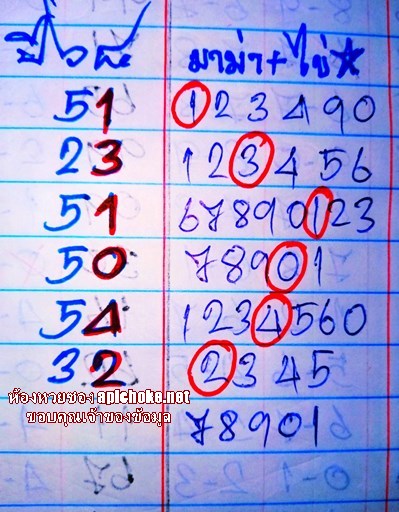 ปิ๋วสี่ มาม่า+ไข่★
51 1 2 3 4 9 0
23 1 2 3 4 5 6
51 6 7 8 9 0 1 2 3
50 7 8 9 0 1
54 1 2 3 4 5 6 0
32 2 3 4 5
ห้องหวยซอง apichoke.net
ขอบคุณเจ้าของข้อมูล
7 8 9 0 1